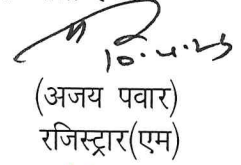 10.4.25
(अजय पवार)
रजिस्ट्रार(एम)